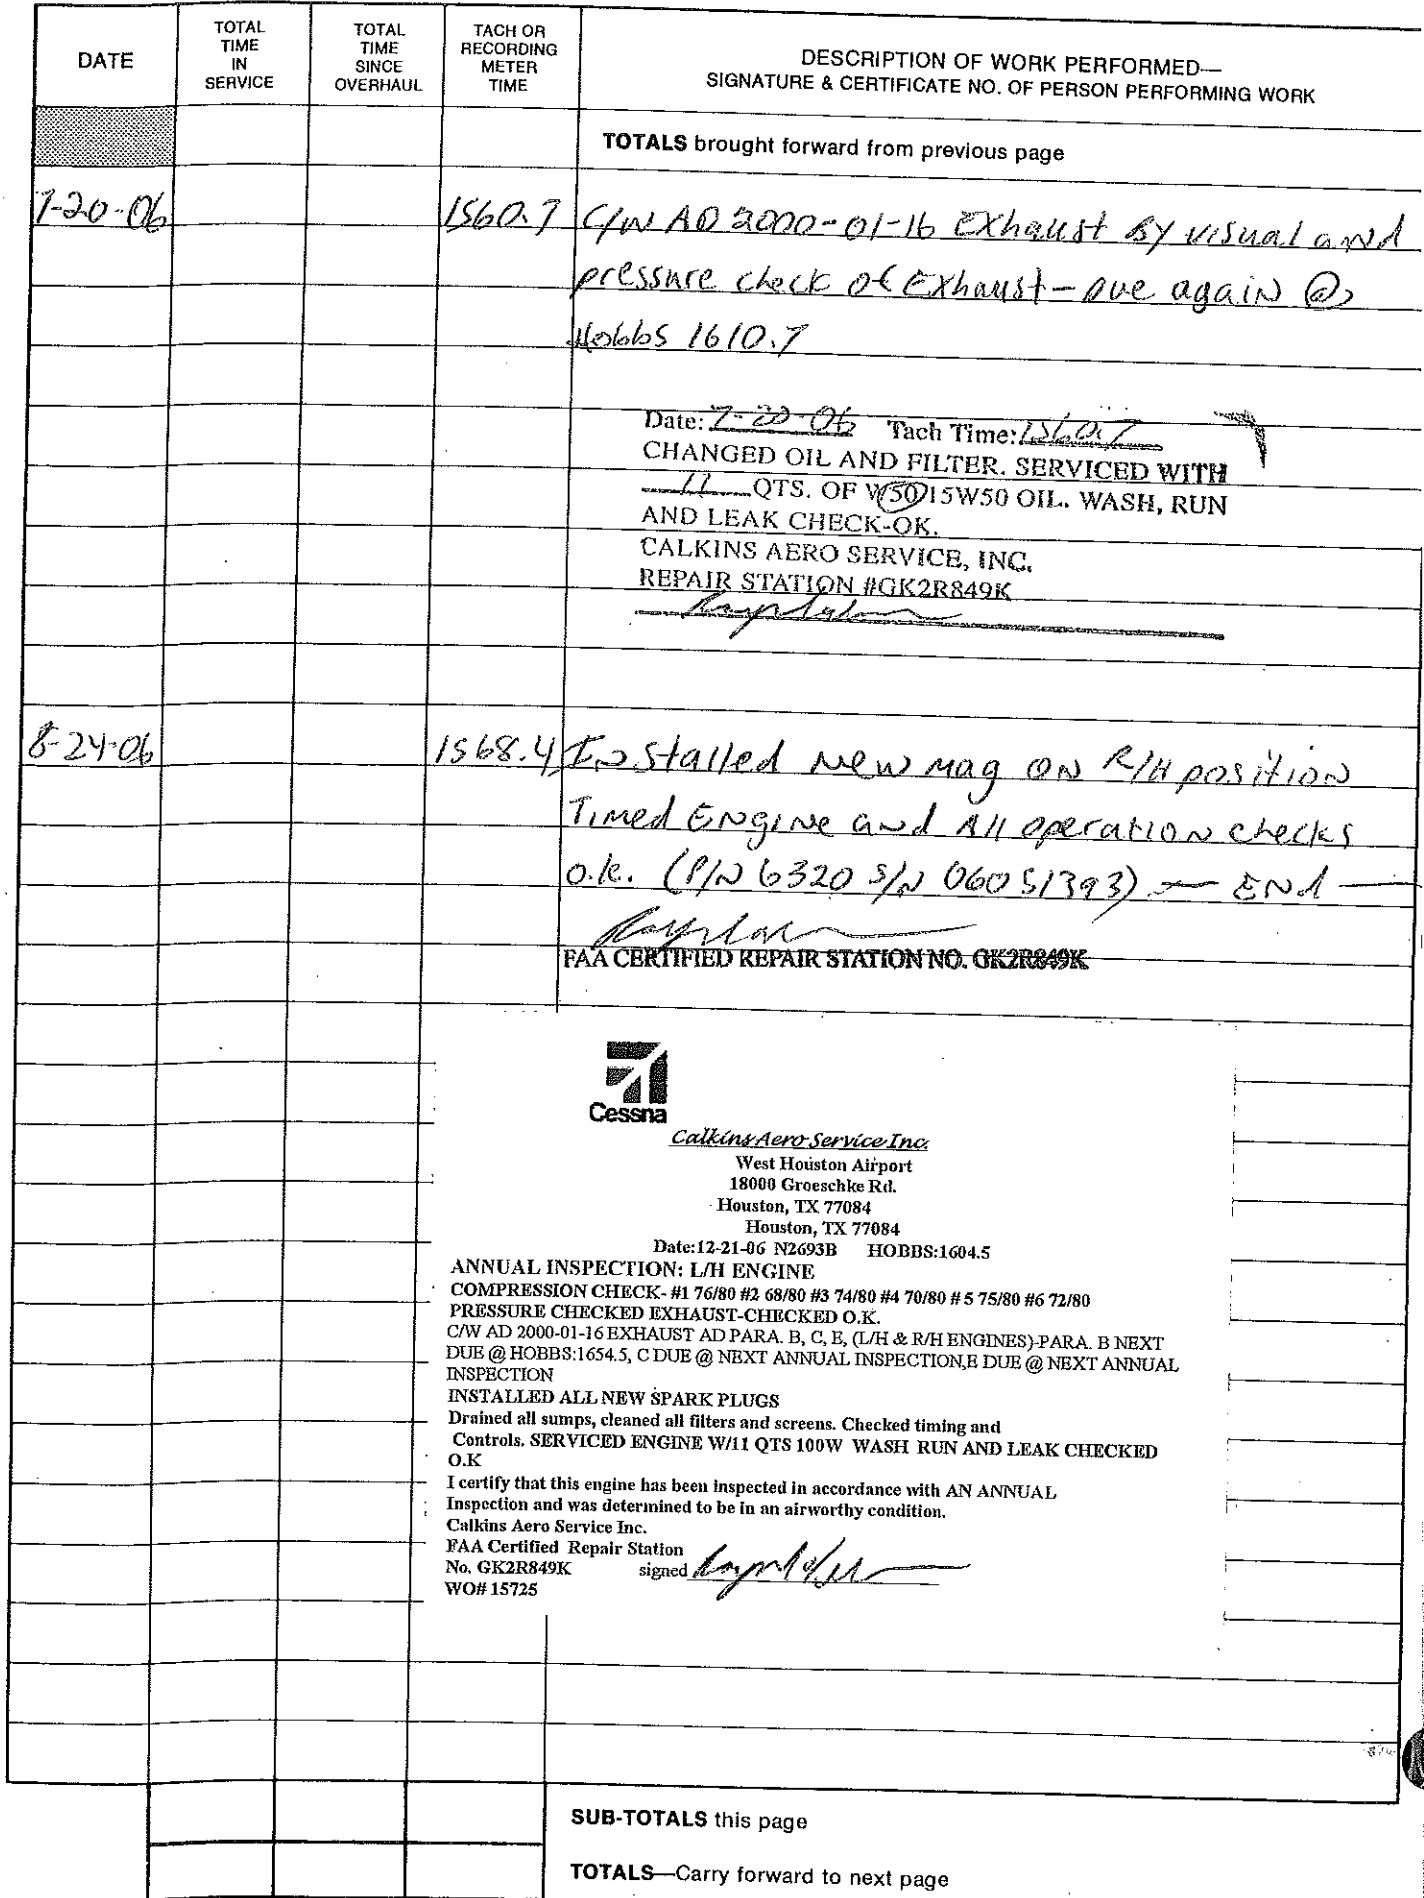 DATE
TOTAL TIME IN SERVICE
TOTAL TIME SINCE OVERHAUL
TACH OR RECORDING METER TIME
DESCRIPTION OF WORK PERFORMED—
SIGNATURE & CERTIFICATE NO. OF PERSON PERFORMING WORK
TOTALS brought forward from previous page
7-20-06 1560.7 C/W AD 2000-01-16 Exhaust By visual and
pressure check of Exhaust - Due again @
Hobbs 1610.7
Date: 7-20-06 Tach Time: 1560.7
CHANGED OIL AND FILTER. SERVICED WITH
11 QTS. OF W50 15W50 OIL. WASH, RUN
AND LEAK CHECK-OK.
CALKINS AERO SERVICE, INC.
REPAIR STATION #GK2R849K
8-24-06 1568.4 Installed New mag on R/H position
Timed Engine and All operation checks
o.k. (P/N 6320 S/N 06051393) — END —
FAA CERTIFIED REPAIR STATION NO. GK2R849K
Cessna
Calkins Aero Service Inc.
West Houston Airport
18000 Groeschke Rd.
Houston, TX 77084
Houston, TX 77084
Date:12-21-06 N2693B HOBBS:1604.5
ANNUAL INSPECTION: L/H ENGINE
COMPRESSION CHECK- #1 76/80 #2 68/80 #3 74/80 #4 70/80 # 5 75/80 #6 72/80
PRESSURE CHECKED EXHAUST-CHECKED O.K.
C/W AD 2000-01-16 EXHAUST AD PARA. B, C, E, (L/H & R/H ENGINES)-PARA. B NEXT
DUE @ HOBBS:1654.5, C DUE @ NEXT ANNUAL INSPECTION,E DUE @ NEXT ANNUAL
INSPECTION
INSTALLED ALL NEW SPARK PLUGS
Drained all sumps, cleaned all filters and screens. Checked timing and
Controls. SERVICED ENGINE W/11 QTS 100W WASH RUN AND LEAK CHECKED
O.K
I certify that this engine has been inspected in accordance with AN ANNUAL
Inspection and was determined to be in an airworthy condition.
Calkins Aero Service Inc.
FAA Certified Repair Station
No. GK2R849K signed
WO# 15725
SUB-TOTALS this page
TOTALS—Carry forward to next page